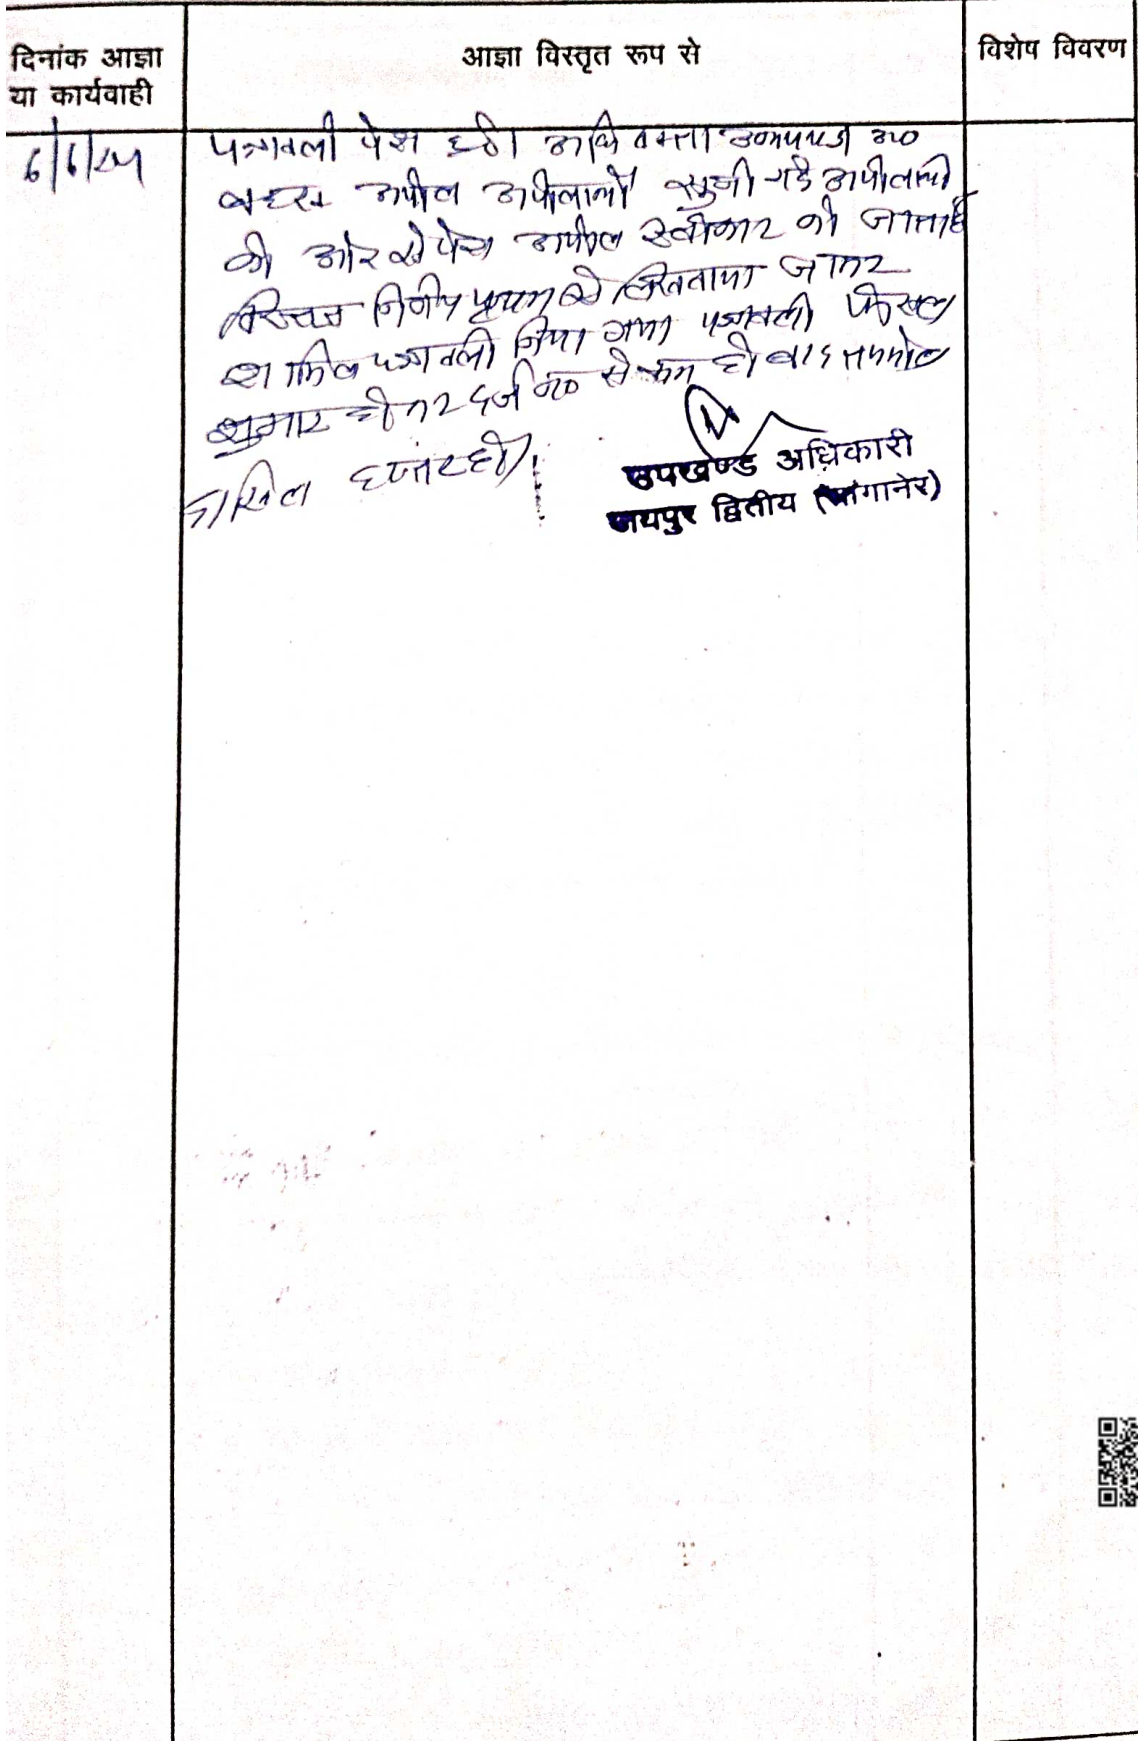 दिनांक आज्ञा
या कार्यवाही
आज्ञा विस्तृत रूप से
विशेष विवरण
6/6/24
पत्रावली पेश हुई। अधिवक्ता उभयपक्ष उप०
बहस अपील अपीलार्थी सुनी गई अपीलार्थी
की ओर से पेश अपील स्वीकार की जाती है
विस्तृत निर्णय पृथक से लिखवाया जाकर
शामिल पत्रावली किया गया पत्रावली फैसल
शुमार होकर दर्ज न० से कम हो बाद तकमील
दाखिल दफ्तर हो।
उपखण्ड अधिकारी
जयपुर द्वितीय (सांगानेर)